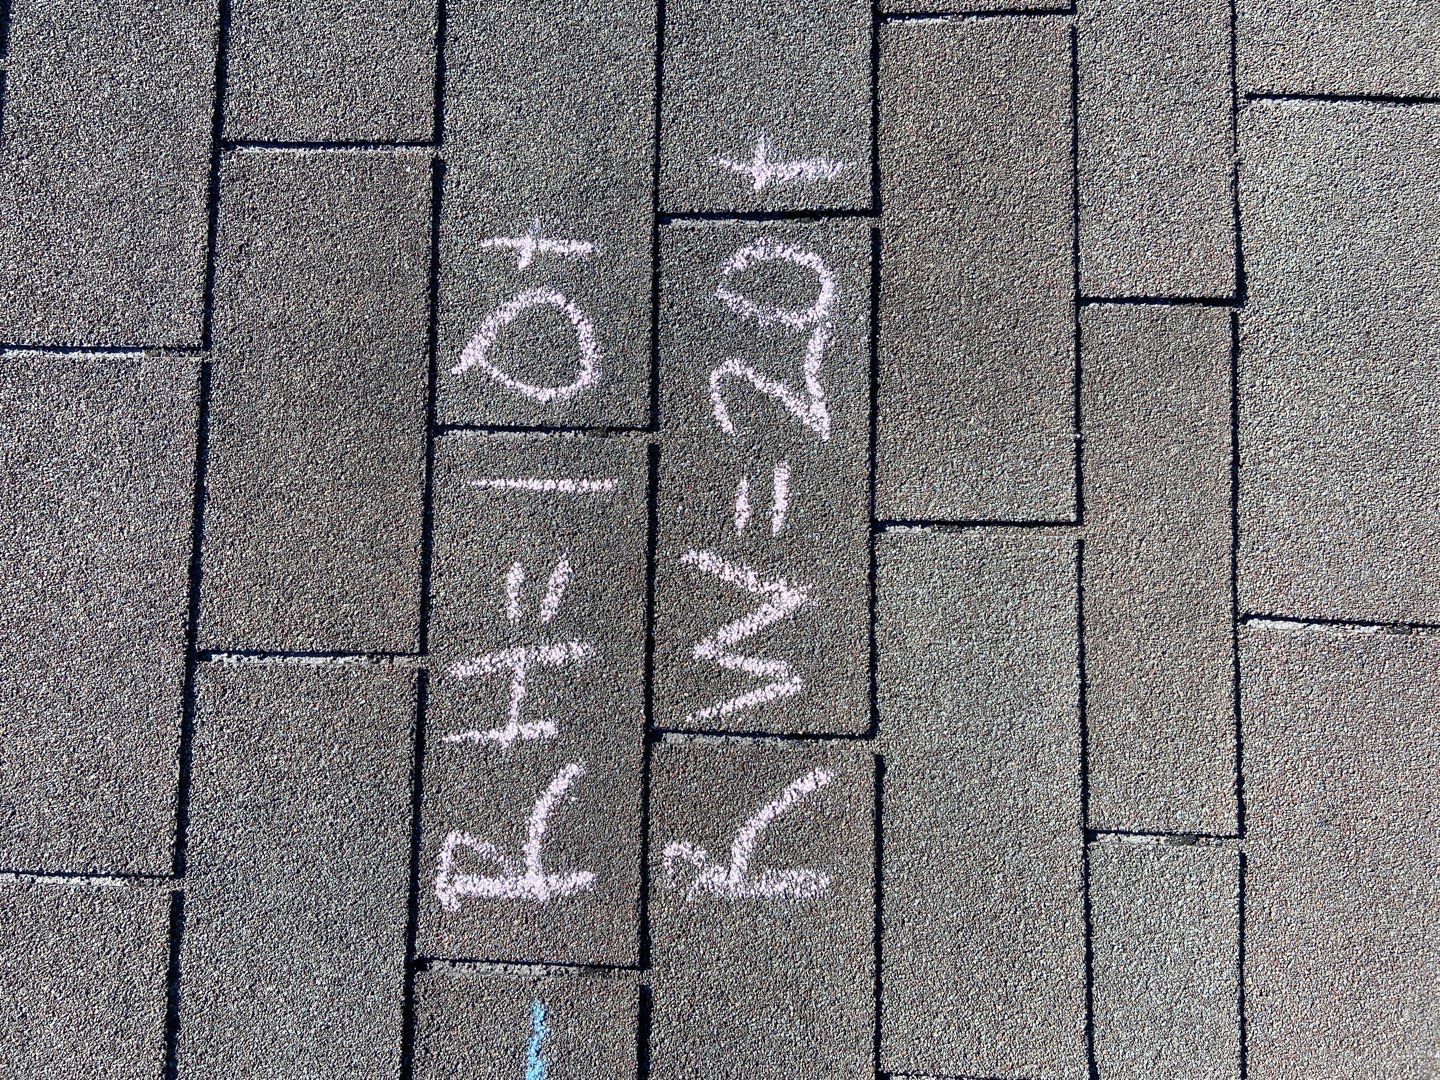 RH=10+
RW=20+